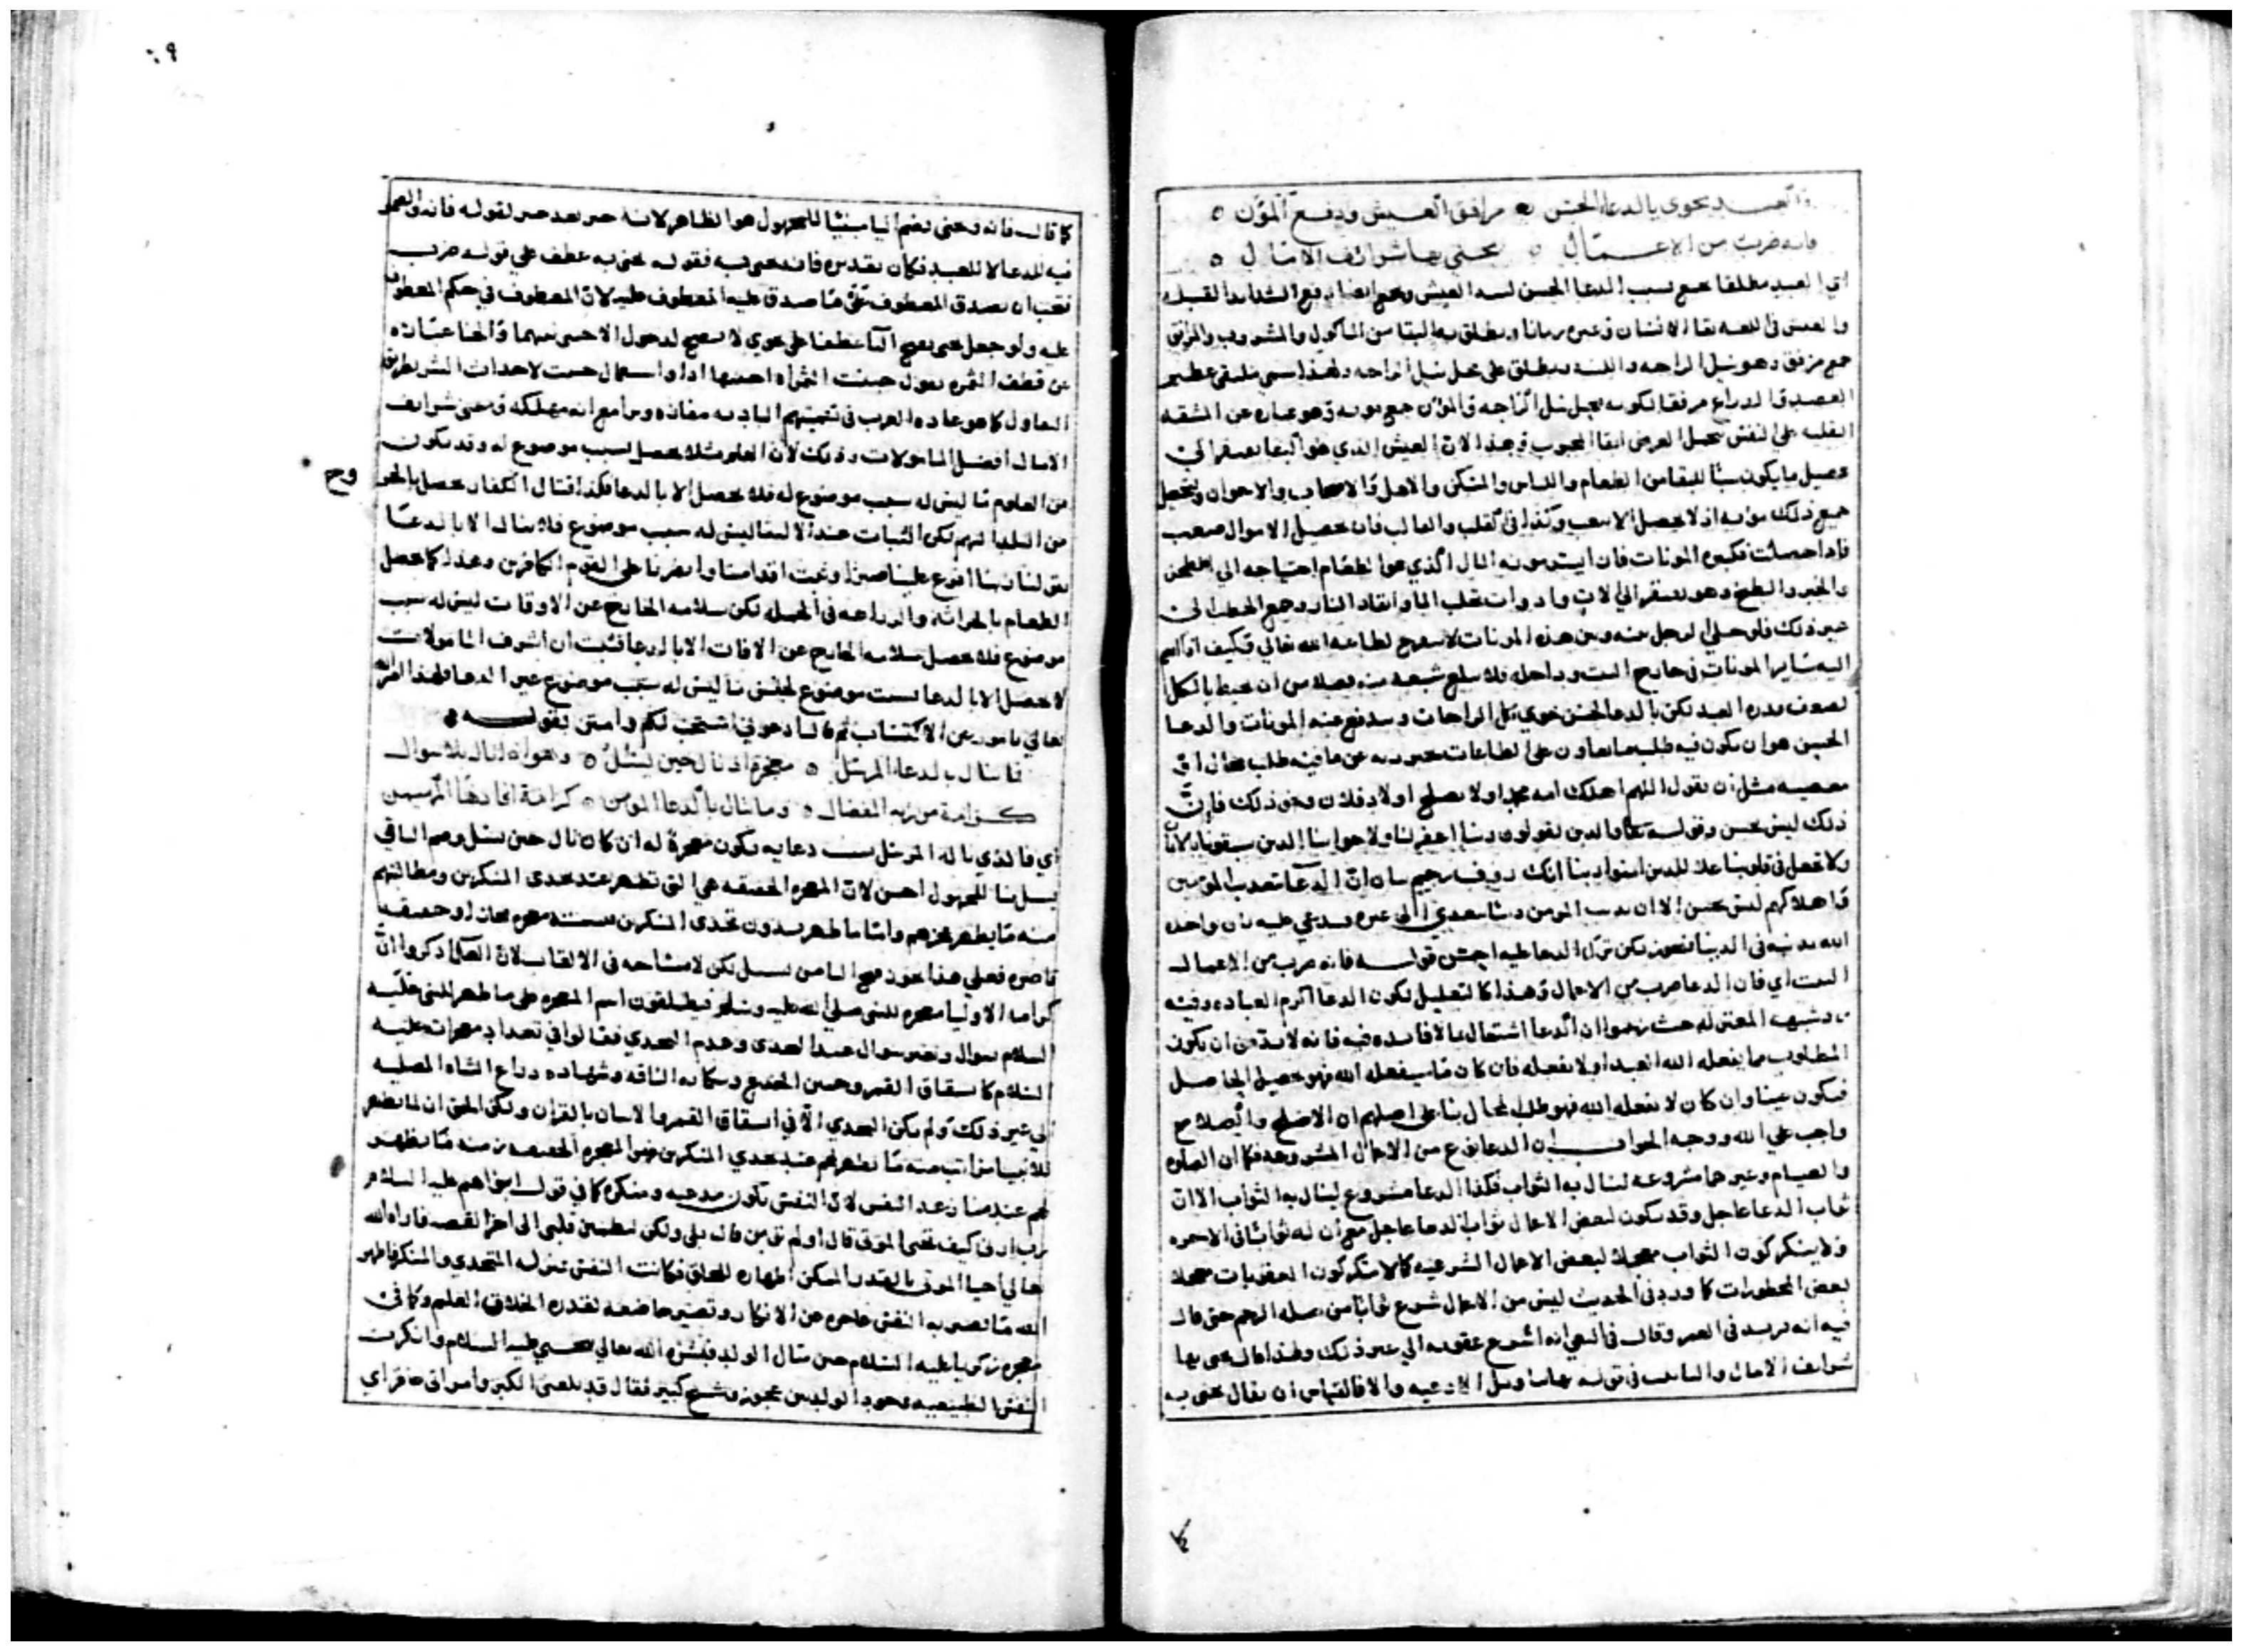 والعبد يحوى بالدعا الحسن مرافق العيش ودفع المؤن
فانه ضرب من الاعمال يجنى بها شرائف الامال
اي العبد مطلقا يجمع بسبب الدعا الحسن لسه العيش ويجمع ايضا دفع الشدايد
والعيش في اللغه بقا الانسان وغيره زمانا ويطلق به البقا من الماكول والمشروب والمرافق
جمع مرفق وهو نيل الراحه يطلق على محل نيل الراحه ولهذا سمي ملتقى عظيم
العضد والذراع مرفقا لكونه محل نيل الراحه والمؤن جمع مونه وهو عباره عن المشقه
على النفس لاجل العيش الذي هو البقا يفتقر الى
تحصيل ما يكون سببا للبقا من الطعام واللباس والمسكن والاهل والاصحاب والاخوان
جميع ذلك مؤنه اذ لا يحصل الا بتعب وكذا في القلب والقالب فان تحصيل الاموال صعب
فاذا حصلت المونات فان ايسر مونه المال الذي هو الطعام احتياجه الى الطحن
والخبز والطبخ وهو يفتقر الى الات وادوات بجلب الما وايقاد النار وجمع الحطب الى
غير ذلك فلو خلي الرجل بينه وبين هذه المونات لا يتفرغ لطاعه الله تعالى فكيف اذا انضم
اليه ساير المونات في خارج البيت وداخله
لضعف قدره العبد لكن بالدعا الحسن يحوي كل الراحات ويندفع عنه المونات والدعا
الحسن هو ان يكون فيه طلب ما يعاون على الطاعات عما فيه طلب محال او
معصيه مثل ان يقول اللهم اهلك امه محمد او لا تصلح اولاد فلان ونحو ذلك فان
ذلك ليس بحسن وقوله تعالى والذين يقولون ربنا اغفر لنا ولاخواننا الذين سبقونا بالايمان
ولا تجعل في قلوبنا غلا للذين امنوا ربنا انك روف رحيم بيان ان الدعا بتعذيب المومنين
واهلاكهم ليس بحسن الا ان المومن دينا يتعدي الى غيره فيدعي عليه بان واخذه
الله بذنبه في الدنيا فيجوز لكن ترك الدعا عليه احسن قوله فانه ضرب من الاعمال
البيت اي فان الدعا ضرب من الاعمال وهذا كالتعليل لكون الدعا اكرم العباده وفيه
رد شبهه المعتزله حيث زعموا ان الدعا اشتغال بما لا فايده فيه فانه لا بد من ان يكون
المطلوب مما يفعله الله العبد او لا يفعله فان كان مما يفعله الله فهو تحصيل الحاصل
فيكون عبثا وان كان لا يفعله الله فهو طلب المحال بنا على اصلهم ان الاصلح والصلاح
واجب على الله ووجه الجواب ان الدعا نوع من الاعمال المشروعه فكما ان الصلوه
والصيام وغيرهما مشروعه لينال به الثواب فكذا الدعا مشروع لينال به الثواب الا ان
ثواب الدعا عاجل وقد يكون لبعض الاعمال ثواب الدعا عاجل مع ان له ثوابا في الاخره
ولا ينكر كون الثواب معجلا لبعض الاعمال الشرعيه كما لا ينكر كون العقوبات معجلا
لبعض المحظورات كما ورد في الحديث ليس من الاعمال شرع ثوابا من صله الرحم حتى قال
فيه انه يزيد في العمر وقال في البغي انه اسرع عقوبه الى غير ذلك ولهذا قال يجنى بها
شرايف الامال والتانيث في قوله بها بتاويل الادعيه والا فالقياس ان يقال يجنى به
٩
كما قال فانه ويجنى بضم اليا مبنيا للمجهول هو الظاهر لانه خبر بعد خبر لقوله فانه والضمير
فيه للدعا لا للعبد فكان تقديره فانه يجنى به فقوله يجنى به عطف على قوله ضرب
فيجب ان يصدق المعطوف على ما صدق عليه المعطوف عليه لان المعطوف في حكم المعطوف
عليه ولو جعل يجنى بفتح اليا عطفا على يحوي لا يصح لدخول الاجنبي بينهما والجنا عباره
عن قطف الثمره يقول جنيت الثمرة اجنيها اذا واستعمال جنيت لاحداث البشر بطريق
التفاول كما هو عاده العرب في تسميتهم الباديه مفازه مع انه مهلكه ومعنى شرايف
الامال افضل المامولات وذلك لان العلم مثلا يحصل بسبب موضوع له وقد يكون
من العلوم ما ليس له سبب موضوع له فلا يحصل الا بالدعا فكذا قتال الكفار يحصل بالخروج
من البلد اليهم لكن الثبات عند الالتقا ليس له سبب موضوع فلا ينال الا بالدعا
بقولنا ربنا افرغ علينا صبرا وثبت اقدامنا وانصرنا على القوم الكافرين وهذا كما يحصل
الطعام بالحراثة والزراعه في الجمله لكن سلامه الخارج عن الافات ليس له سبب
موضوع فلا يحصل سلامه الخارج عن الافات الا بالدعا فثبت ان اشرف المامولات
لا يحصل الا بالدعا ليست موضوع لجنس ما ليس له سبب موضوع غير الدعا فلهذا
تعالى عن الاكتساب ثم قال ادعوني استجب لكم وامتن بقوله
فما ينال بدعا المرسل معجزة اذ نال حين يسئل وهو اذا نال بلا سوال
كرامة من ربه المفضال وما ينال بالدعا المومن كرامة افادها المهيمن
اي فالذي ناله المرسل بسبب دعايه يكون معجزة له ان كان نال حين يسئل وضم اليا في
يسئل بنا للمجهول احسن لان المعجزه الحقيقه هي التي تظهر عند تحدى المنكرين ومطالبتهم
منه ما يظهر عجزهم واما ما ظهر بدون تحدى المنكرين معجزه مجازا او حقيقه
قاصره فعلى هذا يجوز فتح اليا من يسئل لكن لا مشاحه في الالقاب لان العلما ذكروا ان
كرامه الاوليا معجزه للنبي صلى الله عليه وسلم فيطلقون اسم المعجزه على ما ظهر للنبي عليه
السلام بسوال وبغير سوال عند التحدى وعدم التحدي فقالوا في تعداد معجزات عليه
السلام كانشقاق القمر وحنين الجذع وشكايه الناقه وشهاده ذراع الشاه المصليه
الى غير ذلك ولم يكن التحدي الا في انشقاق القمر والاتيان بالقران ولكن الحق ان لما يظهر
للانبيا مراتب منه ما يظهر لهم عند تحدي المنكرين فهو المعجزه الحقيقه ومنه ما يظهر
لهم عند منازعه النفس لان النفس تكون مدعيه ومنكره كما في قول ابراهيم عليه السلام
رب ارني كيف تحي الموتى قال اولم تومن قال بلى ولكن ليطمئن قلبي الى اخر القصه فاراه الله
تعالى احيا الموتى بالقدر الممكن اظهاره للخلق فكانت النفس بمنزله المتحدي والمنكر فاظهر
الله ما تصير به النفس عاجزه عن الانكار وتصير خاضعه لقدره الخلاق العليم وكما في
معجزه زكريا عليه السلام حين سال الولد فبشره الله تعالى بيحيى عليه السلام وانكرت
النفس الطبيعيه وجود الولد من عجوز وشيخ كبير فقال قد بلغني الكبر وامراتى عاقر اي